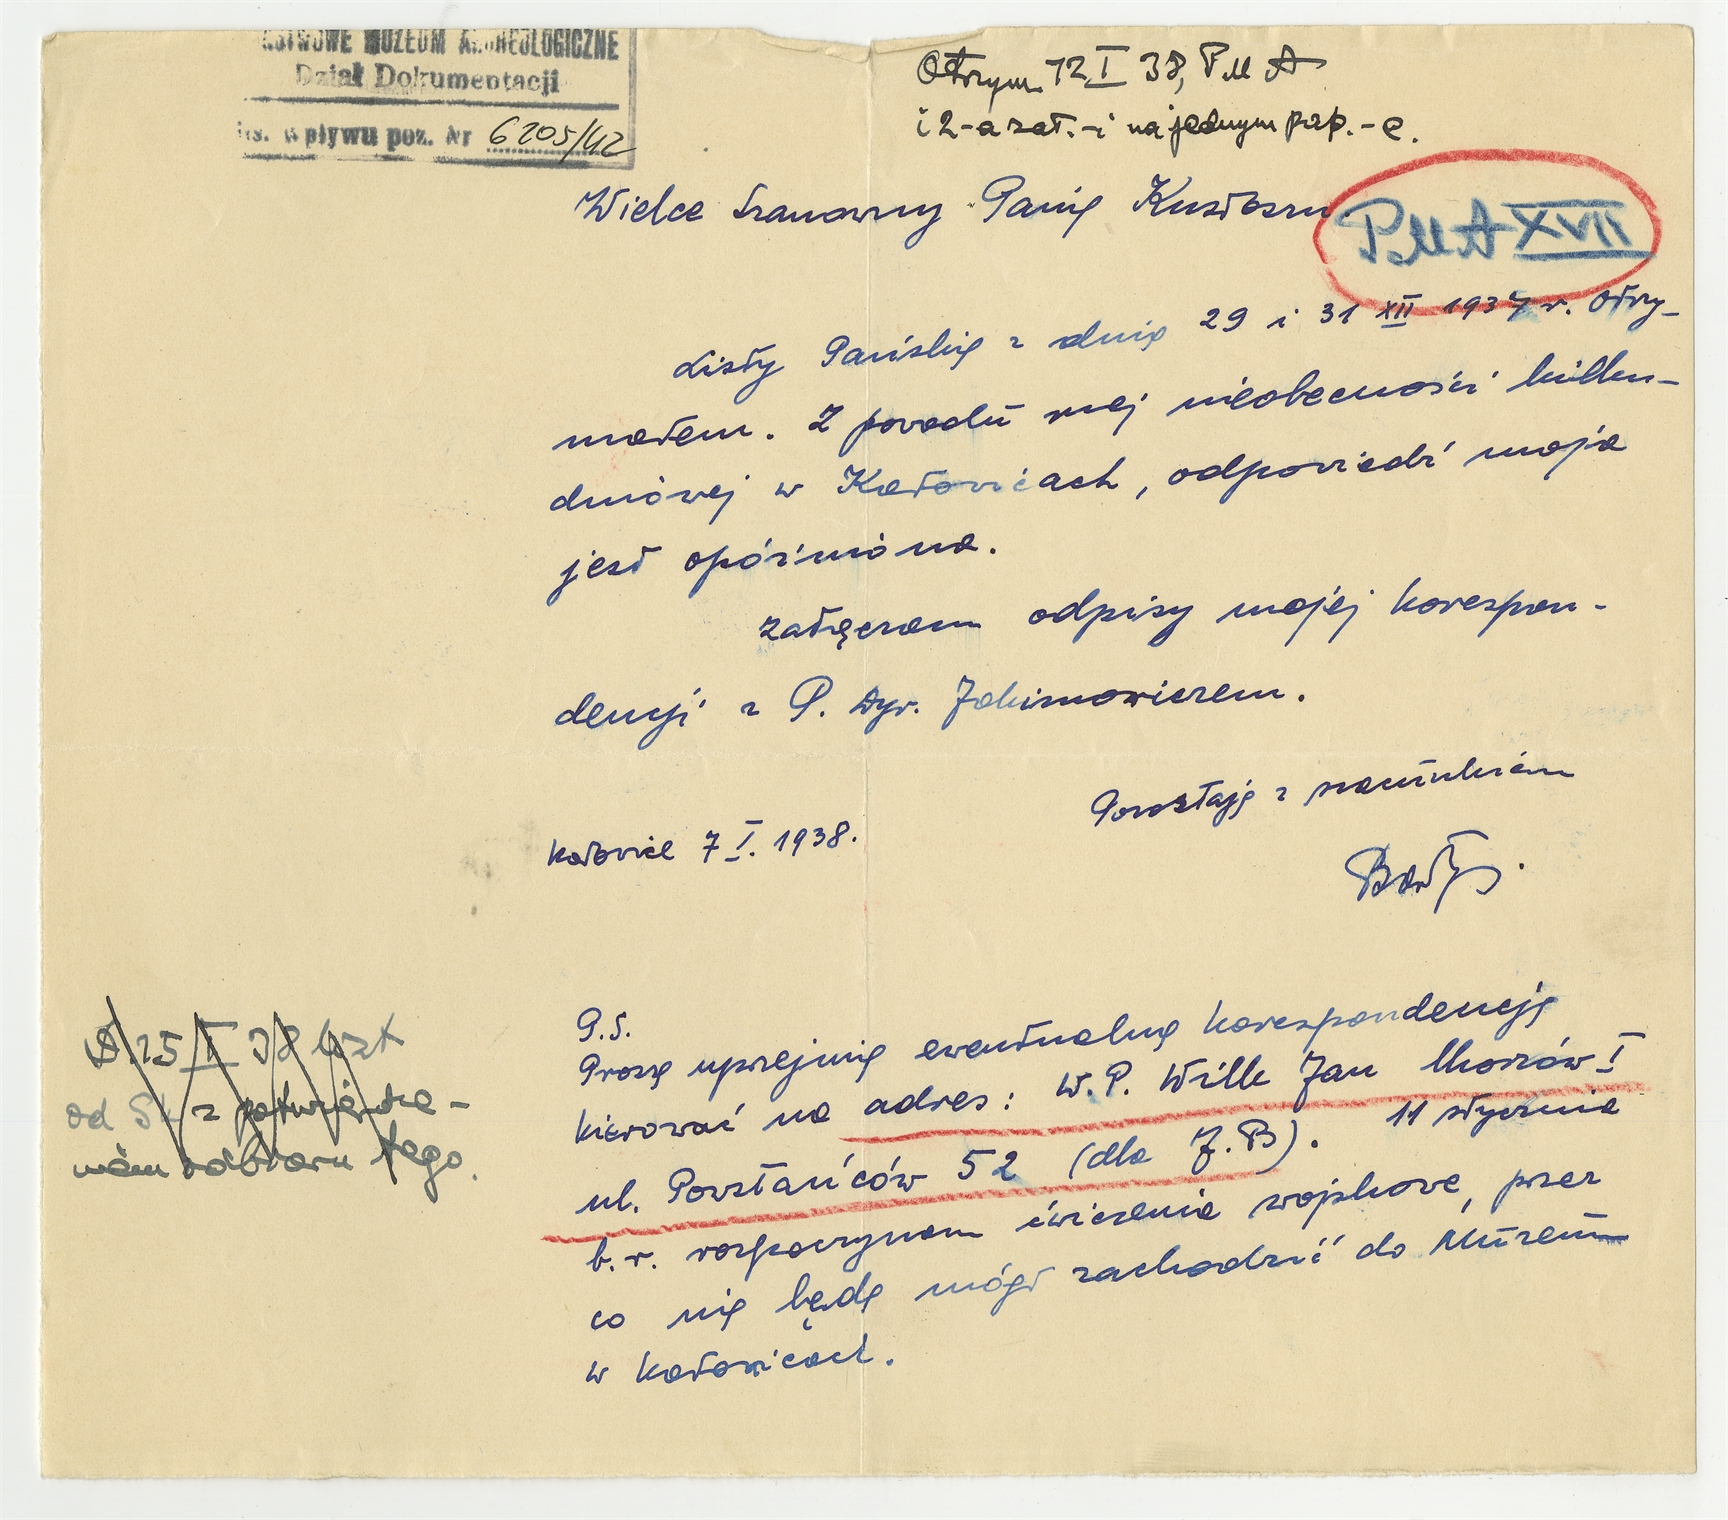 STWOWE MUZEUM ARCHEOLOGICZNE
Dział Dokumentacji
Ks. wpływu poz. Nr 6205/42
Otrzym. 12 I 38, PMA
i 2-a zał.-i na jednym pap.-e.
Wielce Szanowny Panie Kustoszu
PMA XVII
Listy Pańskie z dnia 29 i 31 XII 1937 r. otrzy-
małem. Z powodu mej nieobecności kilku-
dniowej w Katowicach, odpowiedź moja
jest opóźniona.
Załączam odpisy mojej korespon-
dencji z P. Dyr. Jakimowiczem.
Pozostaję z szacunkiem
Katowice 7 I. 1938.
Bartys.
P.S.
Proszę uprzejmie ewentualną korespondencję
kierować na adres: W.P. Wilk Jan Chorzów I
ul. Powstańców 52 (dla J.B). 11 stycznia
b.r. rozpoczynam ćwiczenia wojskowe, przez
co nie będę mógł zachodzić do Muzeum
w Katowicach.
15 I 38 list
od z potwierdze-
niem odbioru tego.